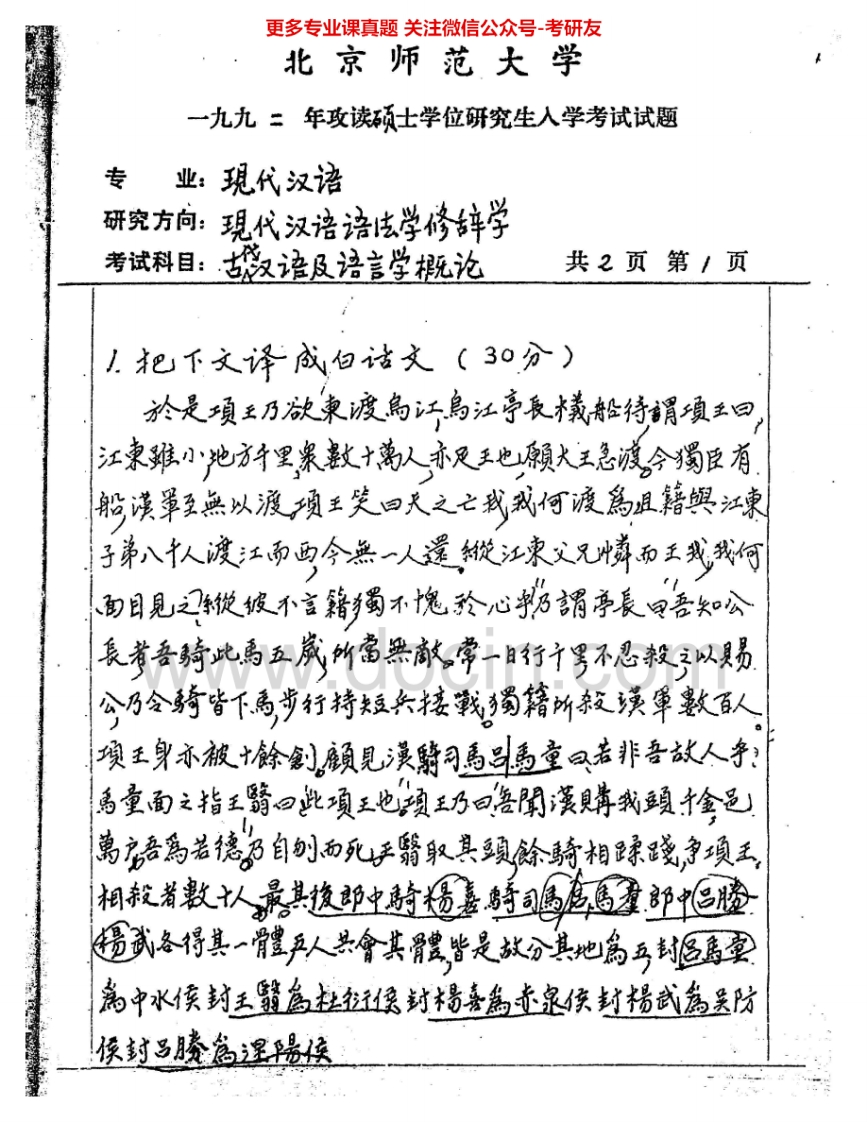 更多专业课真题 关注微信公众号-考研友
北京师范大学
一九九二年攻读硕士学位研究生入学考试试题
专 业：現代汉语
研究方向：現代汉语语法学修辞学
考试科目：古代汉语及语言学概论 共2页 第1页
1. 把下文译成白话文（30分）
於是項王乃欲東渡烏江，烏江亭長檥船待，謂項王曰，
江東雖小，地方千里，衆數十萬人，亦足王也，願大王急渡。今獨臣有
船，漢軍至，無以渡。項王笑曰天之亡我，我何渡為，且籍與江東
子弟八千人渡江而西，今無一人還，縱江東父兄憐而王我，我何
面目見之，縱彼不言，籍獨不愧於心乎”，乃謂亭長曰“吾知公
長者，吾騎此馬五歲，所當無敵。常一日行千里，不忍殺之，以賜
公，乃令騎皆下馬，步行，持短兵接戰，獨籍所殺漢軍數百人。
項王身亦被十餘創，顧見漢騎司馬呂馬童曰，若非吾故人乎？
馬童面之，指王翳曰“此項王也”，項王乃曰“吾聞漢購我頭千金，邑
萬戶，吾為若德”，乃自刎而死，王翳取其頭，餘騎相蹂踐，爭項王，
相殺者數十人，最其後郎中騎楊喜，騎司馬呂馬童，郎中呂勝
楊武各得其一體，五人共會其體，皆是，故分其地為五，封呂馬童
為中水侯封王翳為杜衍侯封楊喜為赤泉侯封楊武為吴防
侯封呂勝為涅陽侯
www.docin.com